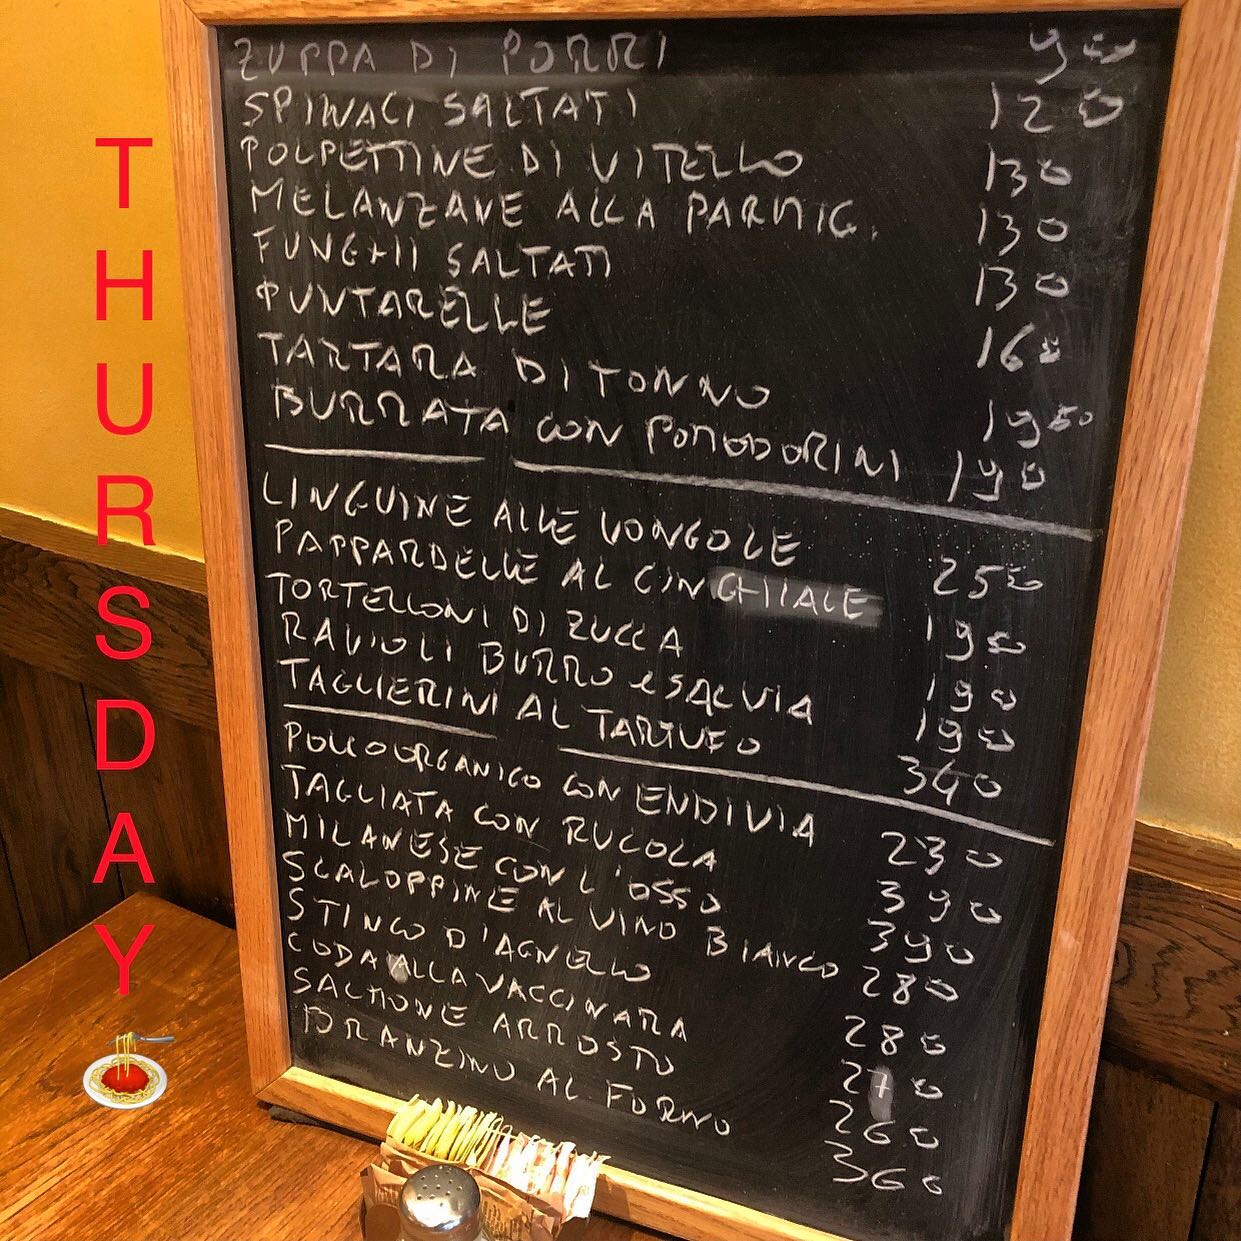 THURSDAY
ZUPPA DI PORRI 9 50
SPINACI SALTATI 12 0
POLPETTINE DI VITELLO 13 0
MELANZANE ALLA PARMIG. 13 0
FUNGHI SALTATI 13 0
PUNTARELLE 16 0
TARTARA DI TONNO 19 50
BURRATA CON POMODORINI 19 0
LINGUINE ALLE VONGOLE 25 50
PAPPARDELLE AL CINGHIALE 19 0
TORTELLONI DI ZUCCA 19 0
RAVIOLI BURRO e SALVIA 19 0
TAGLIERINI AL TARTUFO 34 0
POLLO ORGANICO CON ENDIVIA 23 0
TAGLIATA CON RUCOLA 39 0
MILANESE CON L'OSSO 39 0
SCALOPPINE AL VINO BIANCO 28 0
STINCO D'AGNELLO 28 0
CODA ALLA VACCINARA 27 0
SALMONE ARROSTO 26 0
BRANZINO AL FORNO 36 0